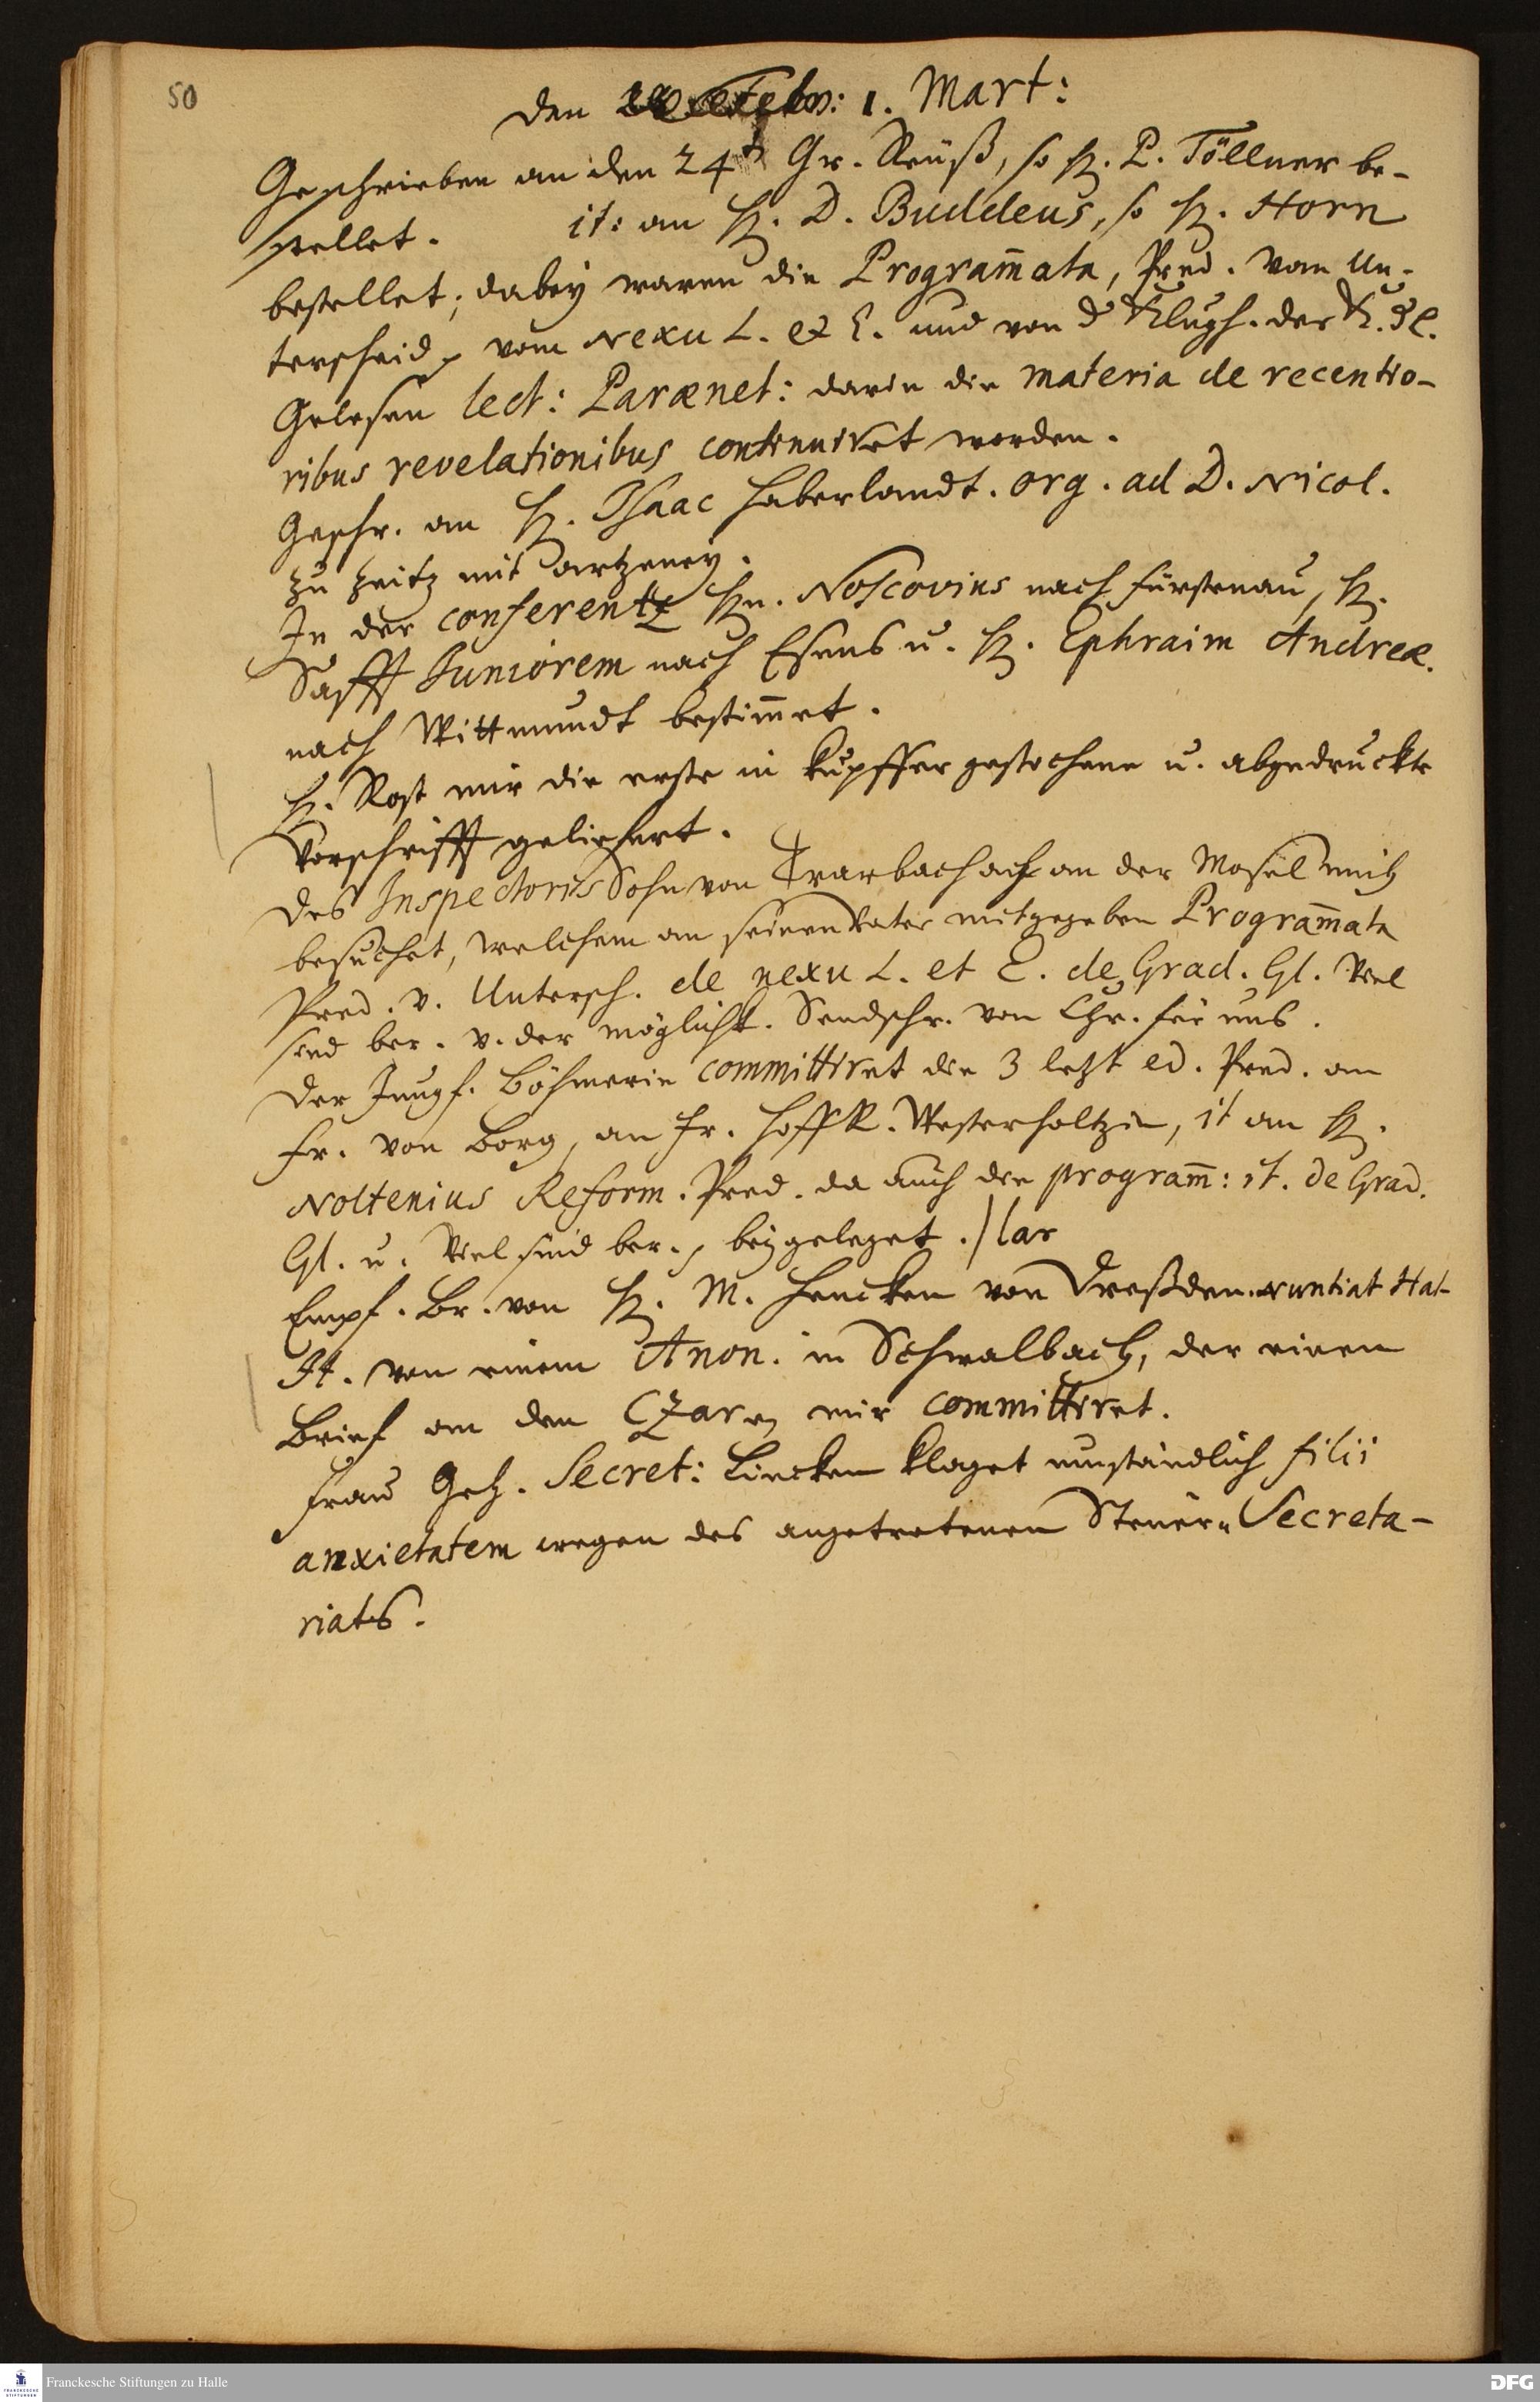 50
Den 1. Mart:
Geschrieben an den 24t Gr. Reuß, so H. P. Töllner be-
stellet. it: an H. D. Buddeus, so H. Horn
bestellet; dabey waren die Programmata, Pred. vom Un-
terscheid, vom Nexu L. et E. und von d Klugh. der K. Gl.
Gelesen lect: Parænet: darin die materia de recentio-
ribus revelationibus continuiret worden.
Geschr. an H. Isaac Haberlandt. org. ad D. Nicol.
zu Zeitz mit artzeney.
In der conferentz Hn. Noscovius nach Fürstenau, H.
Safft Juniorem nach Esens u. H. Ephraim Andreæ.
nach Wittmundt bestimmet.
H. Rost mir die erste in Kupffer gestochene u. abgedruckte
Vorschrifft geliefert.
Des Inspectoris Sohn von Trarbach an der Mosel mich
besuchet, welchem an seinen Vater mitgegeben Programmata
Pred. v. Untersch. de nexu L. et E. de Grad. Gl. Viel
sind ber. v. der möglichk. Sendschr. von Chr. für uns.
Der Jungf. Böhmerin committiret die 3 letzt ed. Pred. an
Fr. von Borg, an Fr. HoffR. Westerholtzin, it an H.
Noltenius Reform. Pred. da auch die programm: it. de Grad.
Gl. u. Viel sind ber., beygeleget. / lar
Empf. Br. von H. M. Hencken von Dreßden. nuntiat Hal-
It. von einem Anon. in Schwalbach, der einen
Brief an den Czaren mir committiret.
Frau Geh. Secret: Lincken klaget umständlich filii
anxietatem wegen des angetretenen Steuer-Secreta-
riats.
Franckesche Stiftungen zu Halle
DFG